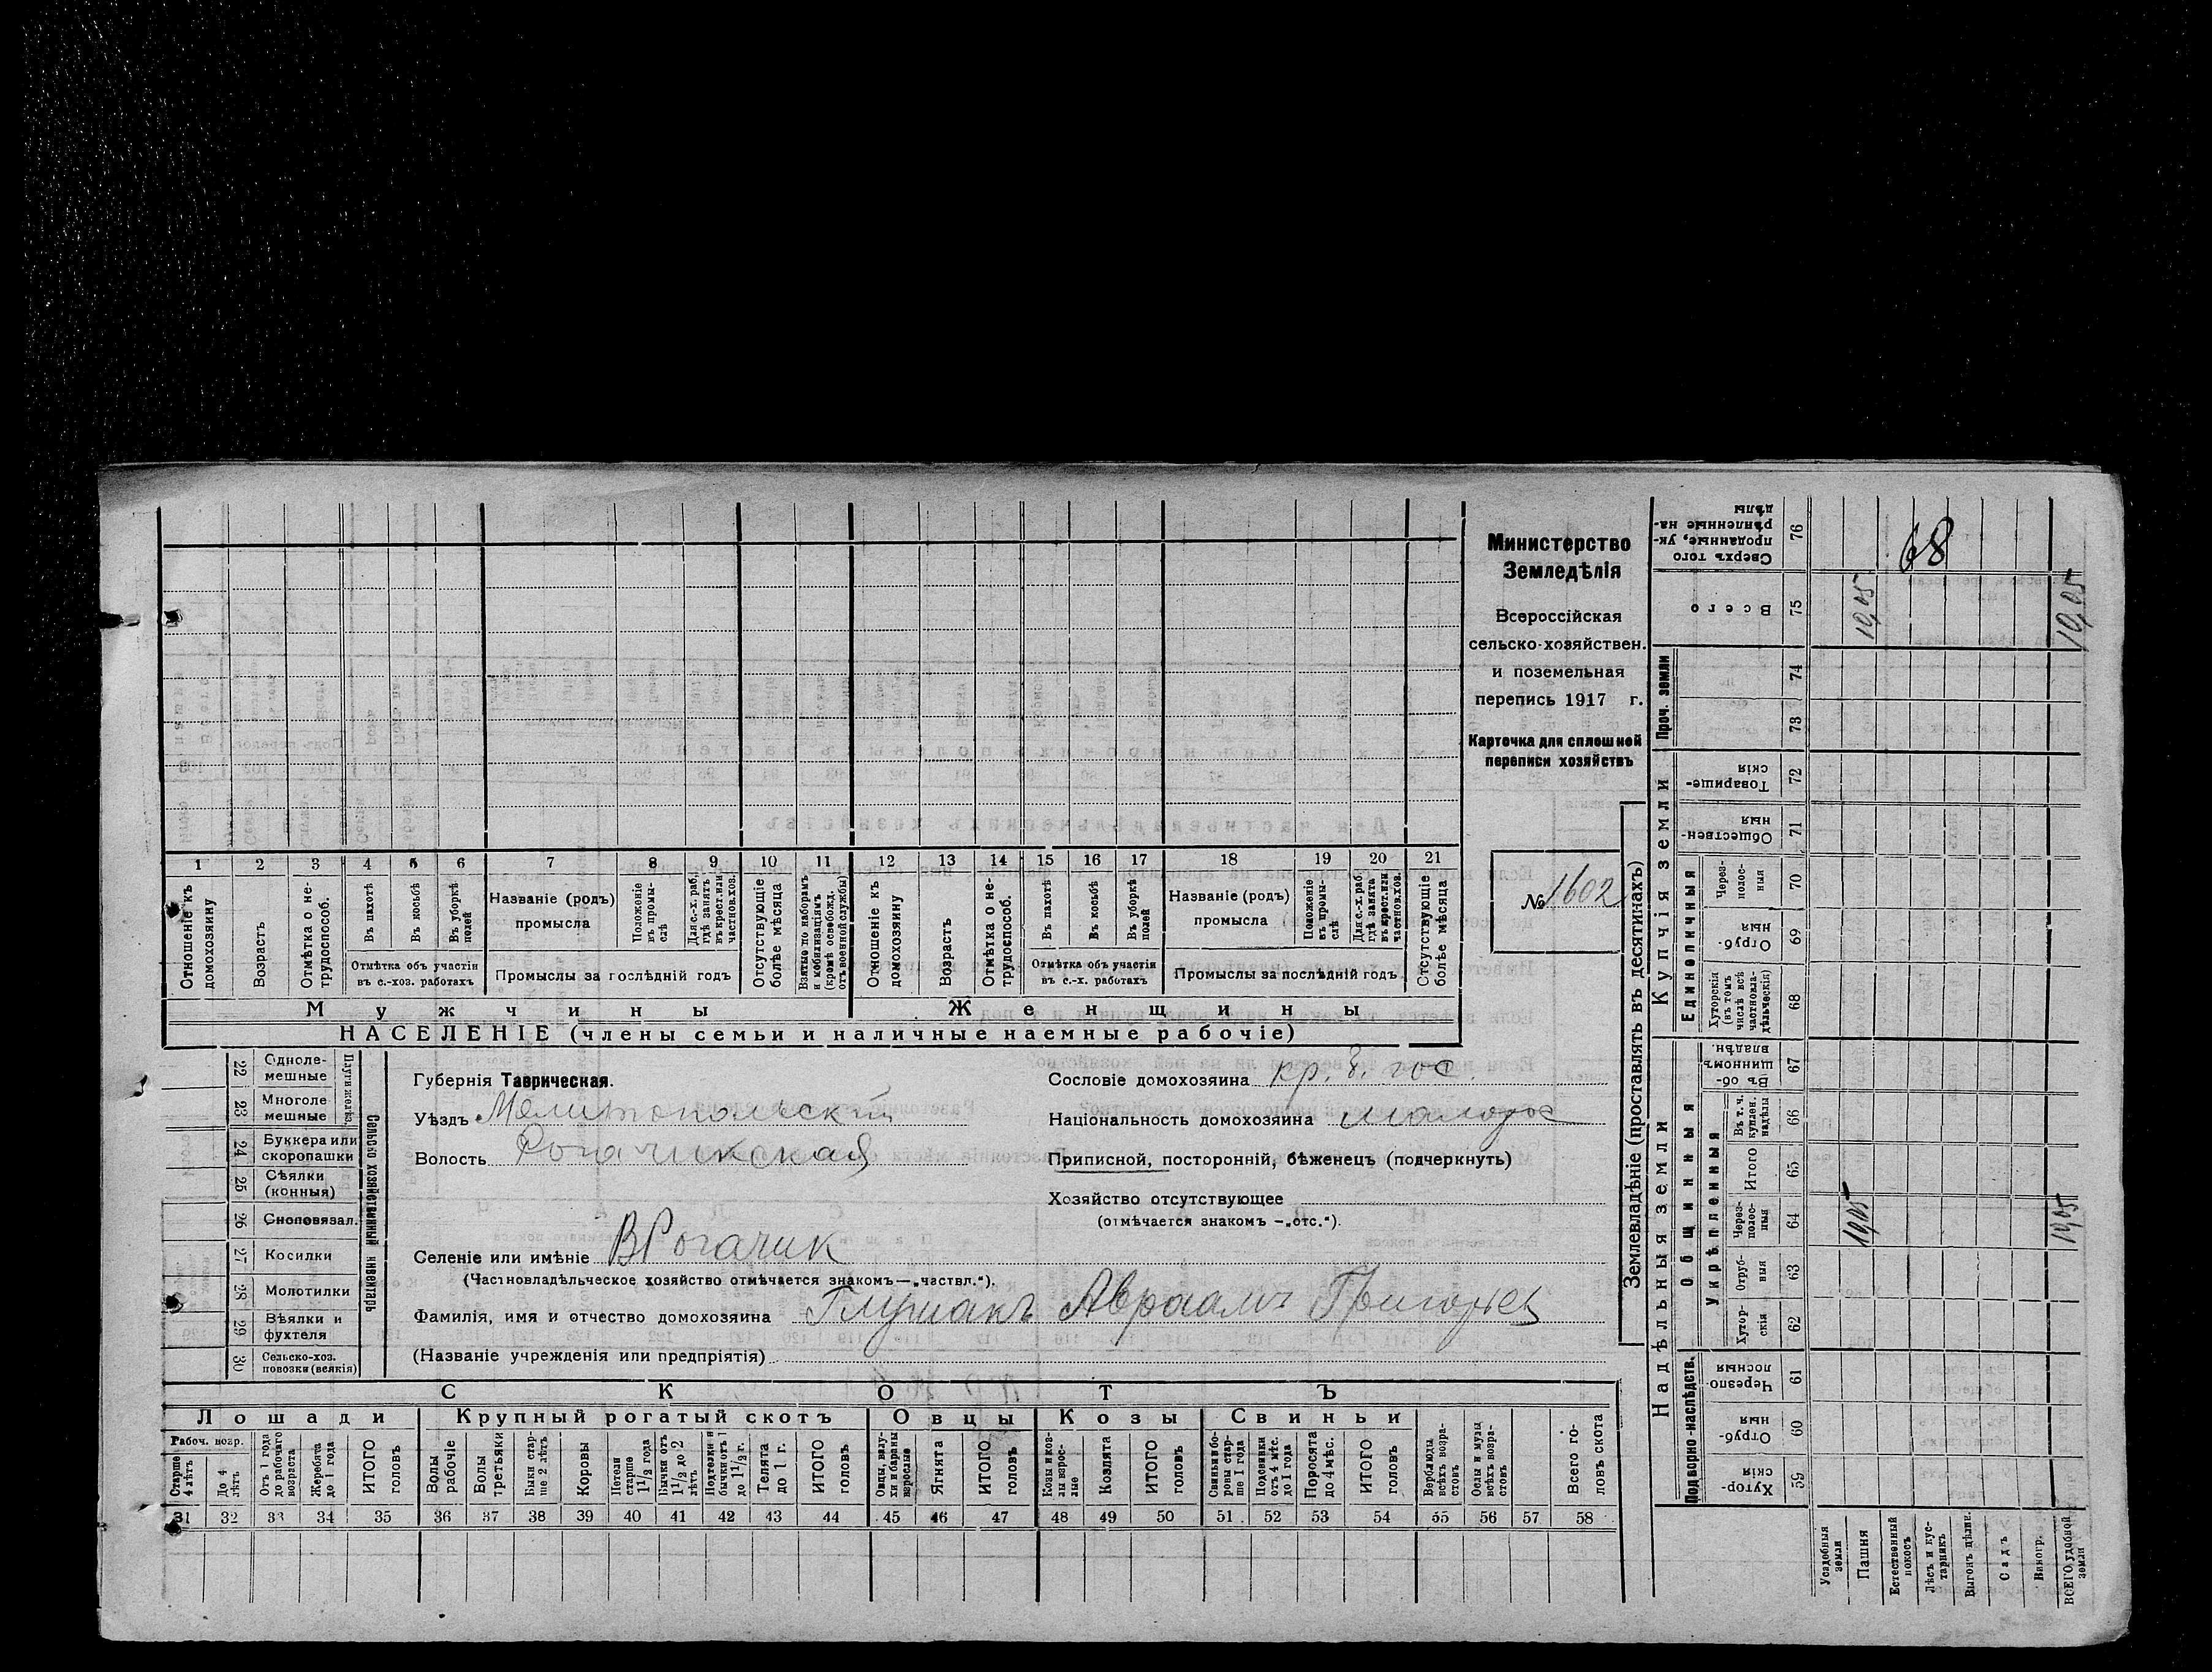 Министерство
Земледѣлія
Всероссійская
сельско-хозяйствен.
и поземельная
перепись 1917 г.
Карточка для сплошной
переписи хозяйствъ
№ 1602
1 2 3 4 5 6 7 8 9 10 11 12 13 14 15 16 17 18 19 20 21
Отношеніе къ домохозяину
Возрастъ
Отмѣтка о не-трудоспособ.
Въ пахотѣ
Въ косьбѣ
Въ уборкѣ полей
Отмѣтка объ участіи въ с.-хоз. работахъ
Названіе (родъ) промысла
Положеніе въ промы-слѣ
Для с.-х. раб., гдѣ занятъ въ крест. или частнов. хоз.
Промыслы за послѣдній годъ
Отсутствующіе болѣе мѣсяца
Взятые по наборамъ и мобилизаціямъ (кромѣ освобожд. отъ военной службы)
Отношеніе къ домохозяину
Возрастъ
Отмѣтка о не-трудоспособ.
Въ пахотѣ
Въ косьбѣ
Въ уборкѣ полей
Отмѣтка объ участіи въ с.-х. работахъ
Названіе (родъ) промысла
Положеніе въ промы-слѣ
Для с.-х. раб. гдѣ занята въ крест. или частнов. хоз.
Промыслы за послѣдній годъ
Отсутствующіе болѣе мѣсяца
Мужчины
Женщины
НАСЕЛЕНІЕ (члены семьи и наличные наемные рабочіе)
22 Одноле-мешные
23 Многоле мешные
Плуги желѣз.
24 Буккера или скоропашки
25 Сѣялки (конныя)
26 Сноповязал.
27 Косилки
28 Молотилки
29 Вѣялки и фухтеля
30 Сельско-хоз. повозки (всякія)
Сельско хозяйственный инвентарь
Губернія Таврическая.
Уѣздъ Мелитопольскій
Волость Рогачикская
Селеніе или имѣніе В Рогачик
(Частновладѣльческое хозяйство отмѣчается знакомъ—„частвл.“).
Фамилія, имя и отчество домохозяина Глушакъ Авраамъ Григорьев
(Названіе учрежденія или предпріятія)
Сословіе домохозяина кр. б. гос.
Національность домохозяина малорос
Приписной, посторонній, бѣженецъ (подчеркнуть)
Хозяйство отсутствующее
(отмѣчается знакомъ —„отс.“).
СКОТЪ
Лошади
Крупный рогатый скотъ
Овцы
Козы
Свиньи
Рабоч. возр.
Старше 4 лѣтъ
До 4 лѣтъ
Отъ 1 года до рабочаго возраста
Жеребята до 1 года
ИТОГО головъ
Волы рабочіе
Волы третьяки
Быки стар-ше 2 лѣтъ
Коровы
Нетели старше 1½ года
Бычки отъ 1½ до 2 лѣтъ
Подтелки и бычки отъ 1 до 1½ г.
Телята до 1 г.
ИТОГО головъ
Овцы, валу-хи и бараны взрослые
Ягнята
ИТОГО головъ
Козы и коз-лы взрос-лые
Козлята
ИТОГО головъ
Свиньи и бо-ровы стар-ше 1 года
Подсвинки отъ 4 мѣс. до 1 года
Поросята до 4 мѣс.
ИТОГО головъ
Верблюды всѣхъ возра-стовъ
Ослы и мулы всѣхъ возра-стовъ
Всего го-ловъ скота
31 32 33 34 35 36 37 38 39 40 41 42 43 44 45 46 47 48 49 50 51 52 53 54 55 56 57 58
Землевладѣніе (проставлять въ десятинахъ)
Надѣльныя земли
Купчія земли
Проч. земли
Подворно-наслѣдств.
Общинныя
Укрѣпленныя
Единоличныя
Сверхъ того проданные, ук-рѣпленные на-дѣлы 76
68
Всего 75 19,05 19,05
74
73
Товарище-скія 72
Обществен-ныя 71
Через-полос-ныя 70
Отруб-ныя 69
Хуторскія (въ томъ числѣ всѣ частновла-дѣльческія) 68
Въ об-щинномъ владѣн. 67
Въ т. ч. куплен. надѣлы 66
Итого 65
Через-полос-ныя 64 19,05 19,05
Отруб-ныя 63
Хутор-скія 62
Черезпо-лосныя 61
Отруб-ныя 60
Хутор-скія 59
Усадебныя земли
Пашня
Естественный покосъ
Лѣсъ и кус-тарникъ
Выгонъ цѣлин.
Садъ
Виногр.
ВСЕГО удобной земли